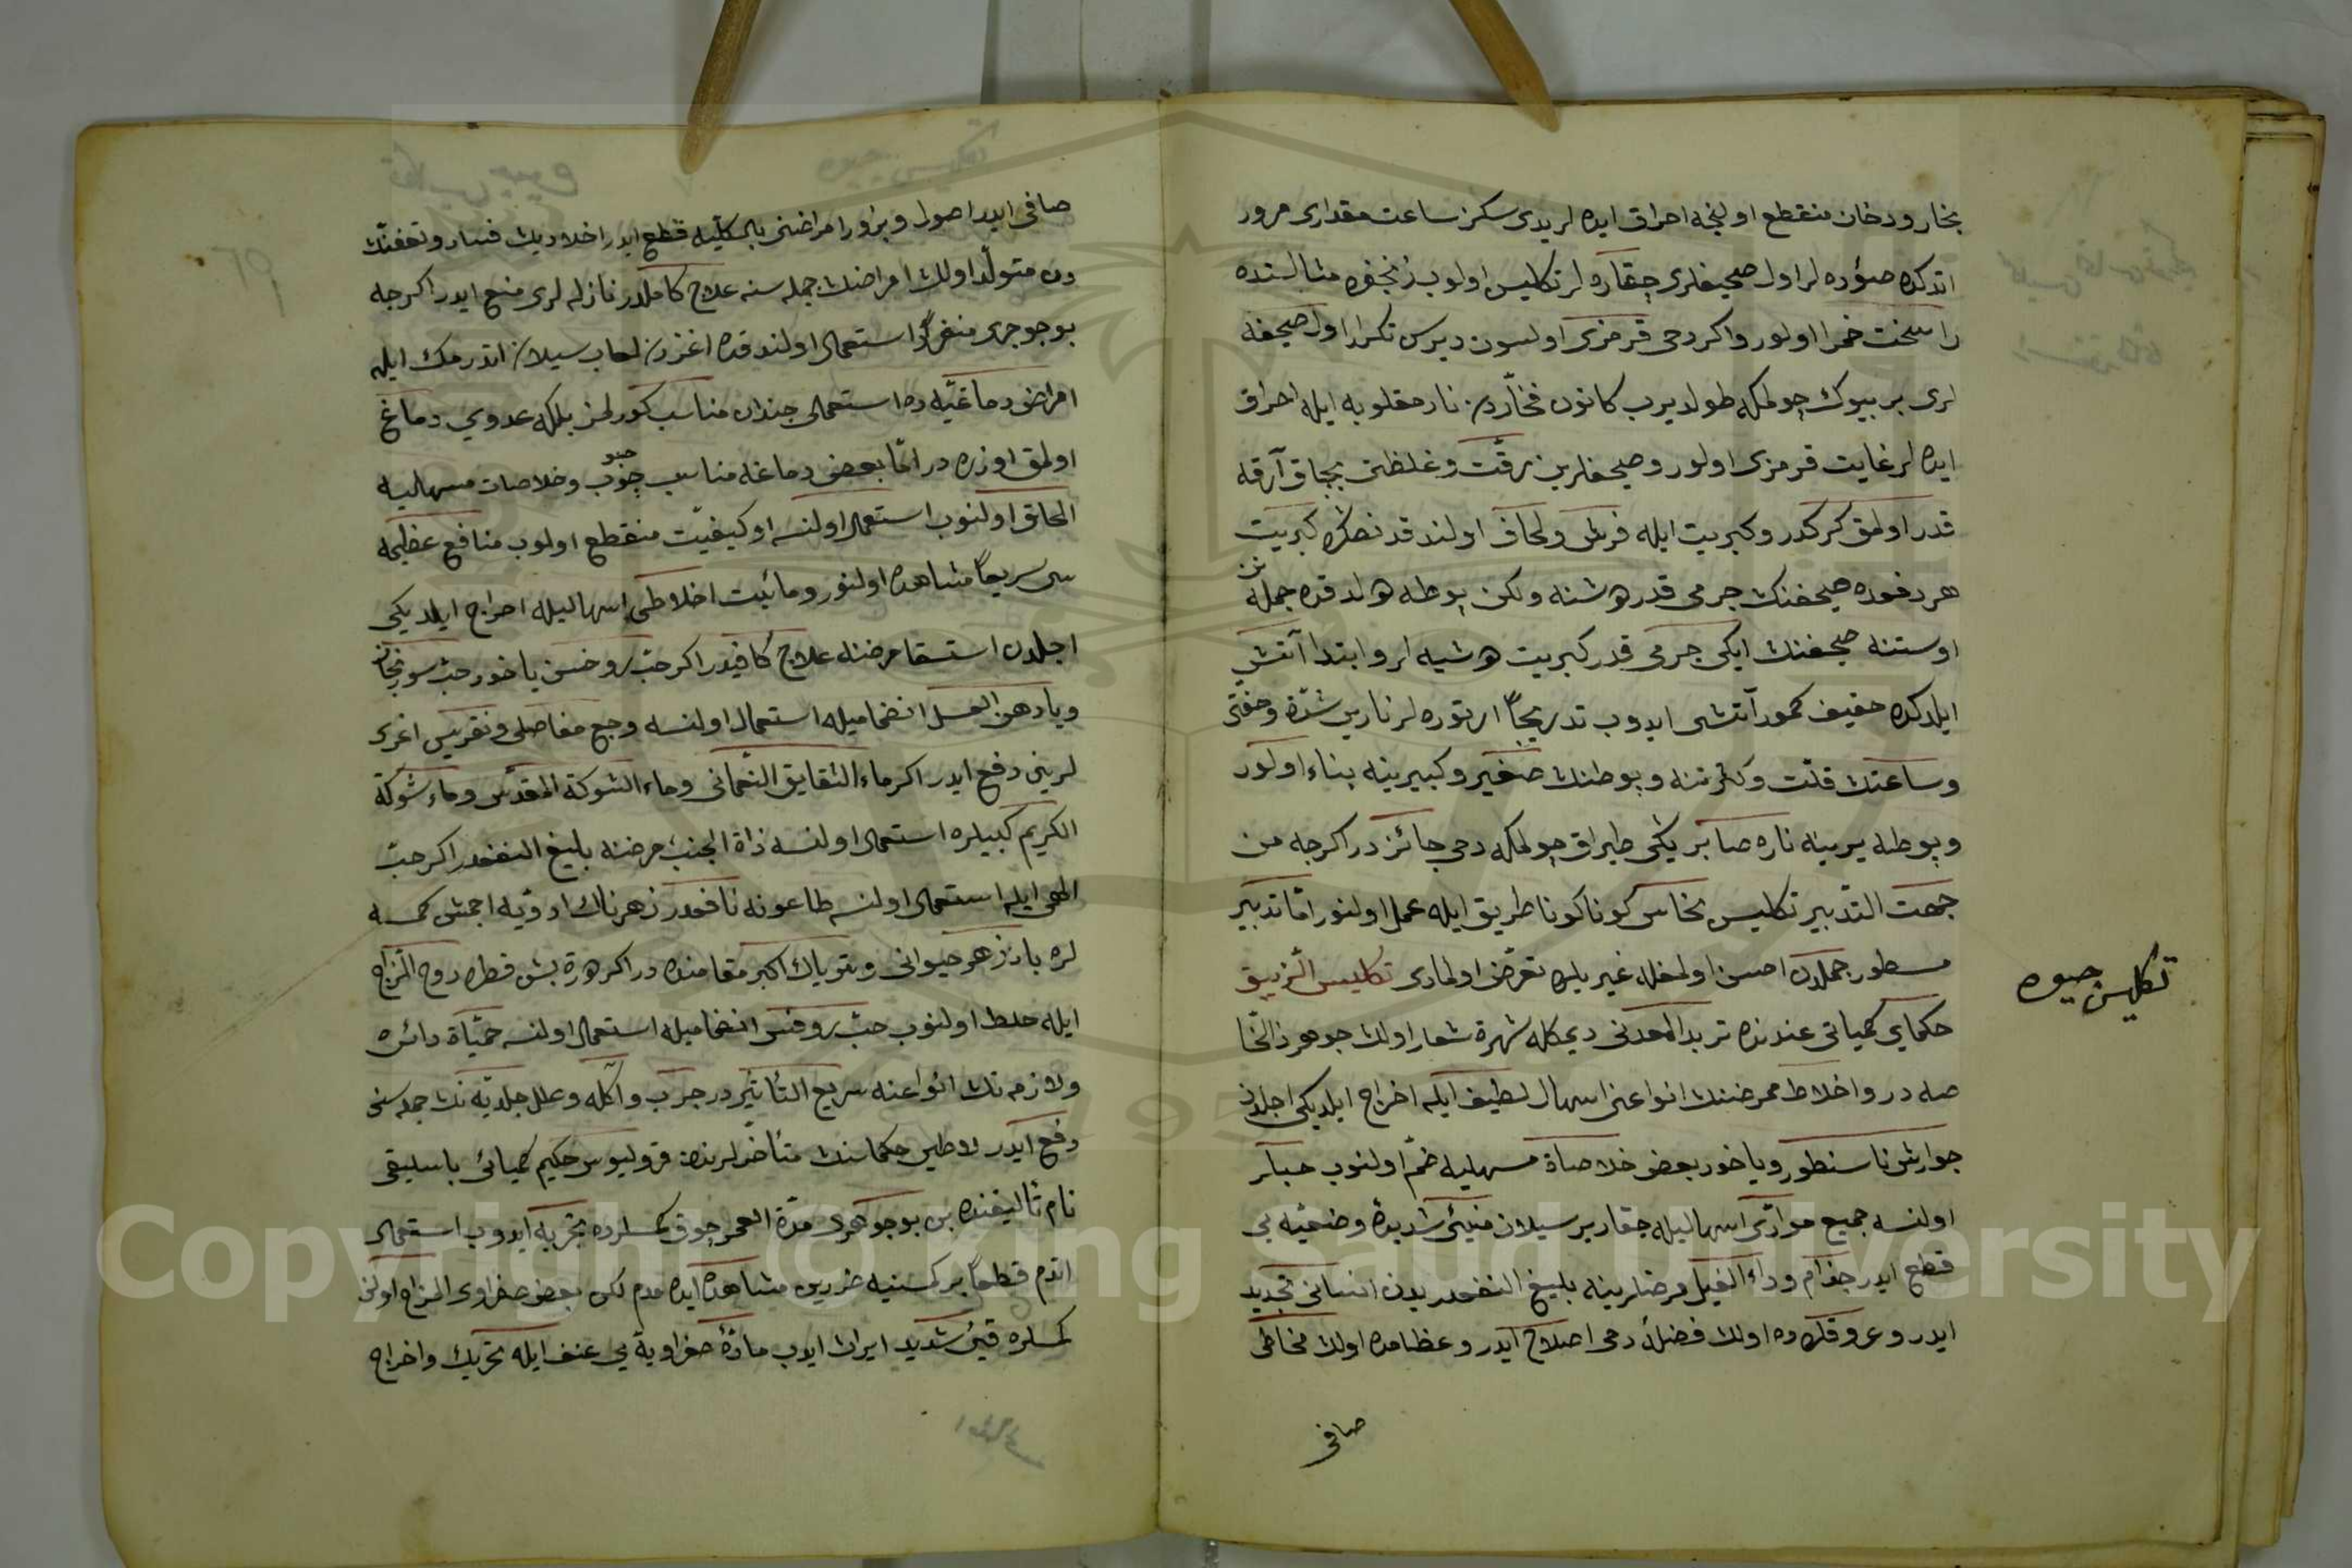 بخار ودخان منقطع اولنجه احراق ایده لر یدی سکز ساعت مقداری مرور
اتدکده صؤوده لر اول صحیفلری چقاره لر تکلیس اولوب زنجفره مثالنده
راسخت خمرا اولور واکر دحی قرمزی اولسون دیرس تکرار اول صحیفه
لری بر بیوك چولمکه طولدیرب کانون فخّاردن نار مقلوبه ایله احراق
ایده لر غایت قرمزی اولور وصحیفلرین رقّت وغلظتی بچاق آرقه
قدر اولمق کرکدر وکبریت ایله فرش ولحاف اولندقدنصکره کبریت
هر دفعه ده صحیفنك جرمی قدر دوشنه ولکن پوطه دولدقده جمله نن
اوستنه صحیفنك ایکی جرمی قدر کبریت دوشیه لر وابتدا آتش
ایلدکده خفیف کمور آتشی ایدوب تدریجاً ارتوره لر نارین شدّة وخفتی
وساعتك قلّت وکثرتنه وپوطنك صغیر وکبیرینه بناء اولور
وپوطه یرینه ناره صابر یکی طپراق چولمکه دحی جائز در اکرچه من
جهت التدبیر تکلیس نحاس کوناکونا طریق ایله عمل اولنور امّا تدبیر
مسطور جملدن احسن اولمغله غیریلره تعرّض اولمادی تکلیس الزیبق
حکمای کمیائی عندنده تربد المعدنی دیمکله شهرة شعار اولان جوهر ذالخا
صه در واخلاط ممرضنك انواعنی اسهال لطیف ایله اخراج ایلدیکی اجلدن
جوارش ناسنطور ویاخود بعض خلاصاة مسهلیه ضمّ اولنوب حبلر
اولنسه جمیع موادّی اسهالیله چقاریر سیلان منیئ شدیدة وضعیّه یی
قطع ایدر جذام وداء الفیل مرضلرینه بلیغ النفعدر بدن انسانی تجدید
ایدر وعروقلرده اولان فضلاً دحی اصلاح ایدر وعظامده اولان مخاطی
صافی
تکلیس جیوه
صافی ایدر اصول وبزور امراضنی بالکلّیه قطع ایدر اخلادیك فساد وتعفننك
دن متولّد اولان امراضك جمله سنه علاج کاملدر نازله لری منع ایدر اکرچه
بو جوهری منفرداً استعمال اولندقده اغزدن لعاب سیلان اتدرمك ایله
امراض دماغیّه ده استعمالی چندان مناسب کورلمز بلکه عدوی دماغ
اولمق اوزره در امّا بعض دماغه مناسب حبوب وخلاصات مسهلیه
الحاق اولنوب استعمال اولنسه او کیفیّت منقطع اولوب منافع عظیمه
سی سریعاً مشاهده اولنور ومائیت اخلاطی اسهالیله اخراج ایلدیکی
اجلدن استسقا مرضنه علاج کافیدر اکر حبّ روحسن یاخود حبّ سورنجان
ویا دهن العسل انضمامیله استعمال اولنسه وجع مفاصلی ونقریس اغری
لرینی دفع ایدر اکر ماء الشقایق النعمانی وماء الشوکة المقدّس وماء شوکة
الکریم کبیلره استعمال اولنسه ذاة الجنب مرضنه بلیغ النفعدر اکر حبّ
الهی ایله استعمال اولنسه طاعونه نافعدر زهرناك ادوّیه اچمش کمسه
لره بادزهر حیوانی وتریاك اکبر مقامنده در اکر هر کرة بش قطره روح الزاج
ایله خلط اولنوب حبّ روفس انضمامیله استعمال اولنسه حمّیاة دائره
ولازمه نك انواعنه سریع التأثیر در جرب وآکله وعلل جلدیّه نك جمله سنی
دفع ایدر لاطین حکماسنك متأخّرلرندن قرولیوس حکیم کمیائی باسلیقی
نام تألیفنده بن بو جوهری مدّة العمر چوق کمسلرده تجربه ایدوب استعمال
اتدم قطعاً بر کمسنیه ضررین مشاهده ایده مدم لکن بعض صفراوی المزاج اولان
کمسلره قیئ شدید ایراث ایدب مادّۀ صفراویة یی عنف ایله تحریك واخراج